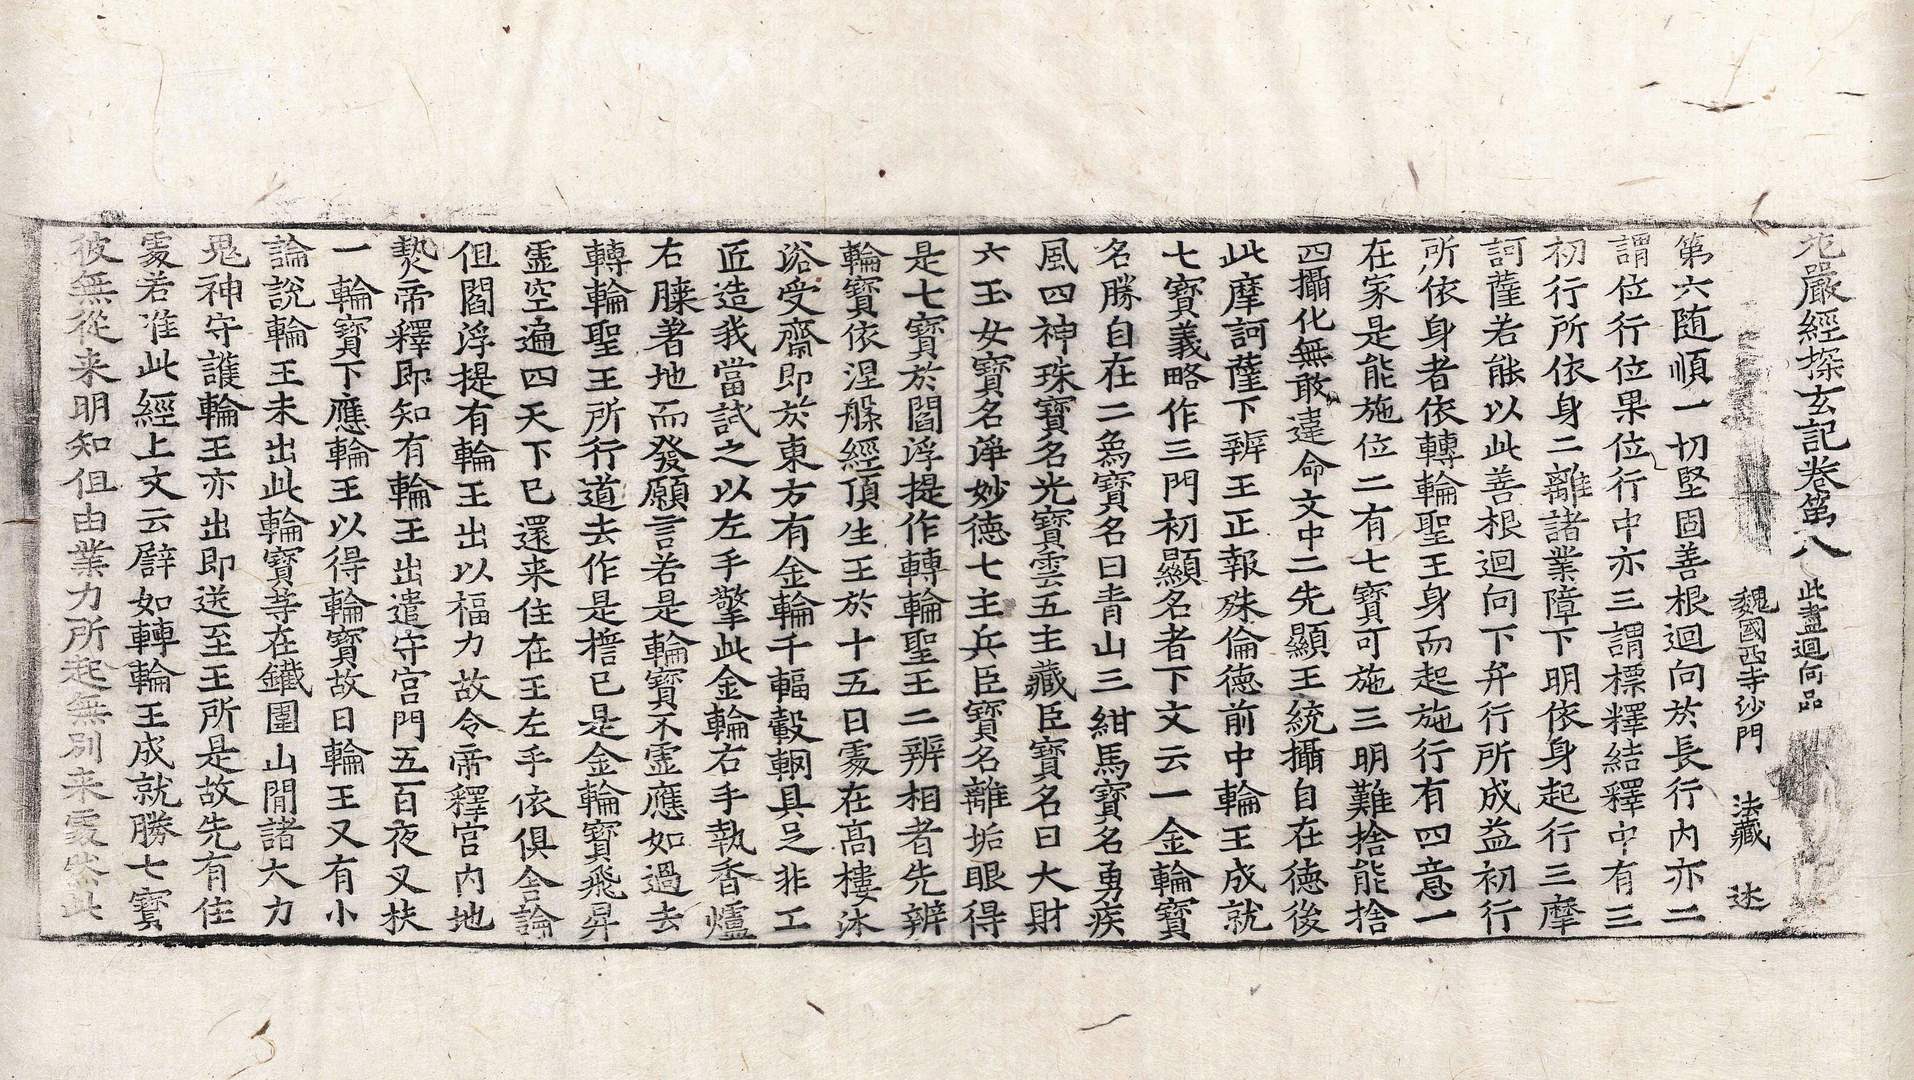 花嚴經探玄記卷第八 此盡迴向品
魏國西寺沙門 法藏 述
第六随順一切堅固善根迴向於長行内亦二
謂位行位果位行中亦三謂標釋結釋中有三
初行所依身二離諸業障下明依身起行三摩
訶薩若能以此善根迴向下弁行所成益初行
所依身者依轉輪聖王身而起施行有四意一
在家是能施位二有七寶可施三明難捨能捨
四攝化無敢違命文中二先顯王統攝自在德後
此摩訶薩下辨王正報殊倫德前中輪王成就
七寶義略作三門初顯名者下文云一金輪寶
名勝自在二爲寶名曰青山三紺馬寶名勇疾
風四神珠寶名光寶雲五主藏臣寶名曰大財
六玉女寶名淨妙德七主兵臣寶名離垢眼得
是七寶於閻浮提作轉輪聖王二辨相者先辨
輪寶依涅槃經頂生王於十五日䖏在高樓沐
浴受齋即於東方有金輪千輻轂輞具足非工
匠造我當試之以左手擎此金輪右手執香爐
右膝著地而發願言若是輪寶不虛應如過去
轉輪聖王所行道去作是擔已是金輪寶飛昇
虛空遍四天下已還来住在王左手依俱舍論
但閻浮提有輪王出以福力故令帝釋宮内地
熱帝釋即知有輪王出遣守宮門五百夜叉扶
一輪寶下應輪王以得輪寶故曰輪王又有小
論說輪王未出此輪寶等在鐵圍山間諸大力
鬼神守護輪王亦出即送至王所是故先有住
䖏若准此經上文云譬如轉輪王成就勝七寶
彼無從来明知但由業力所起無別来䖏